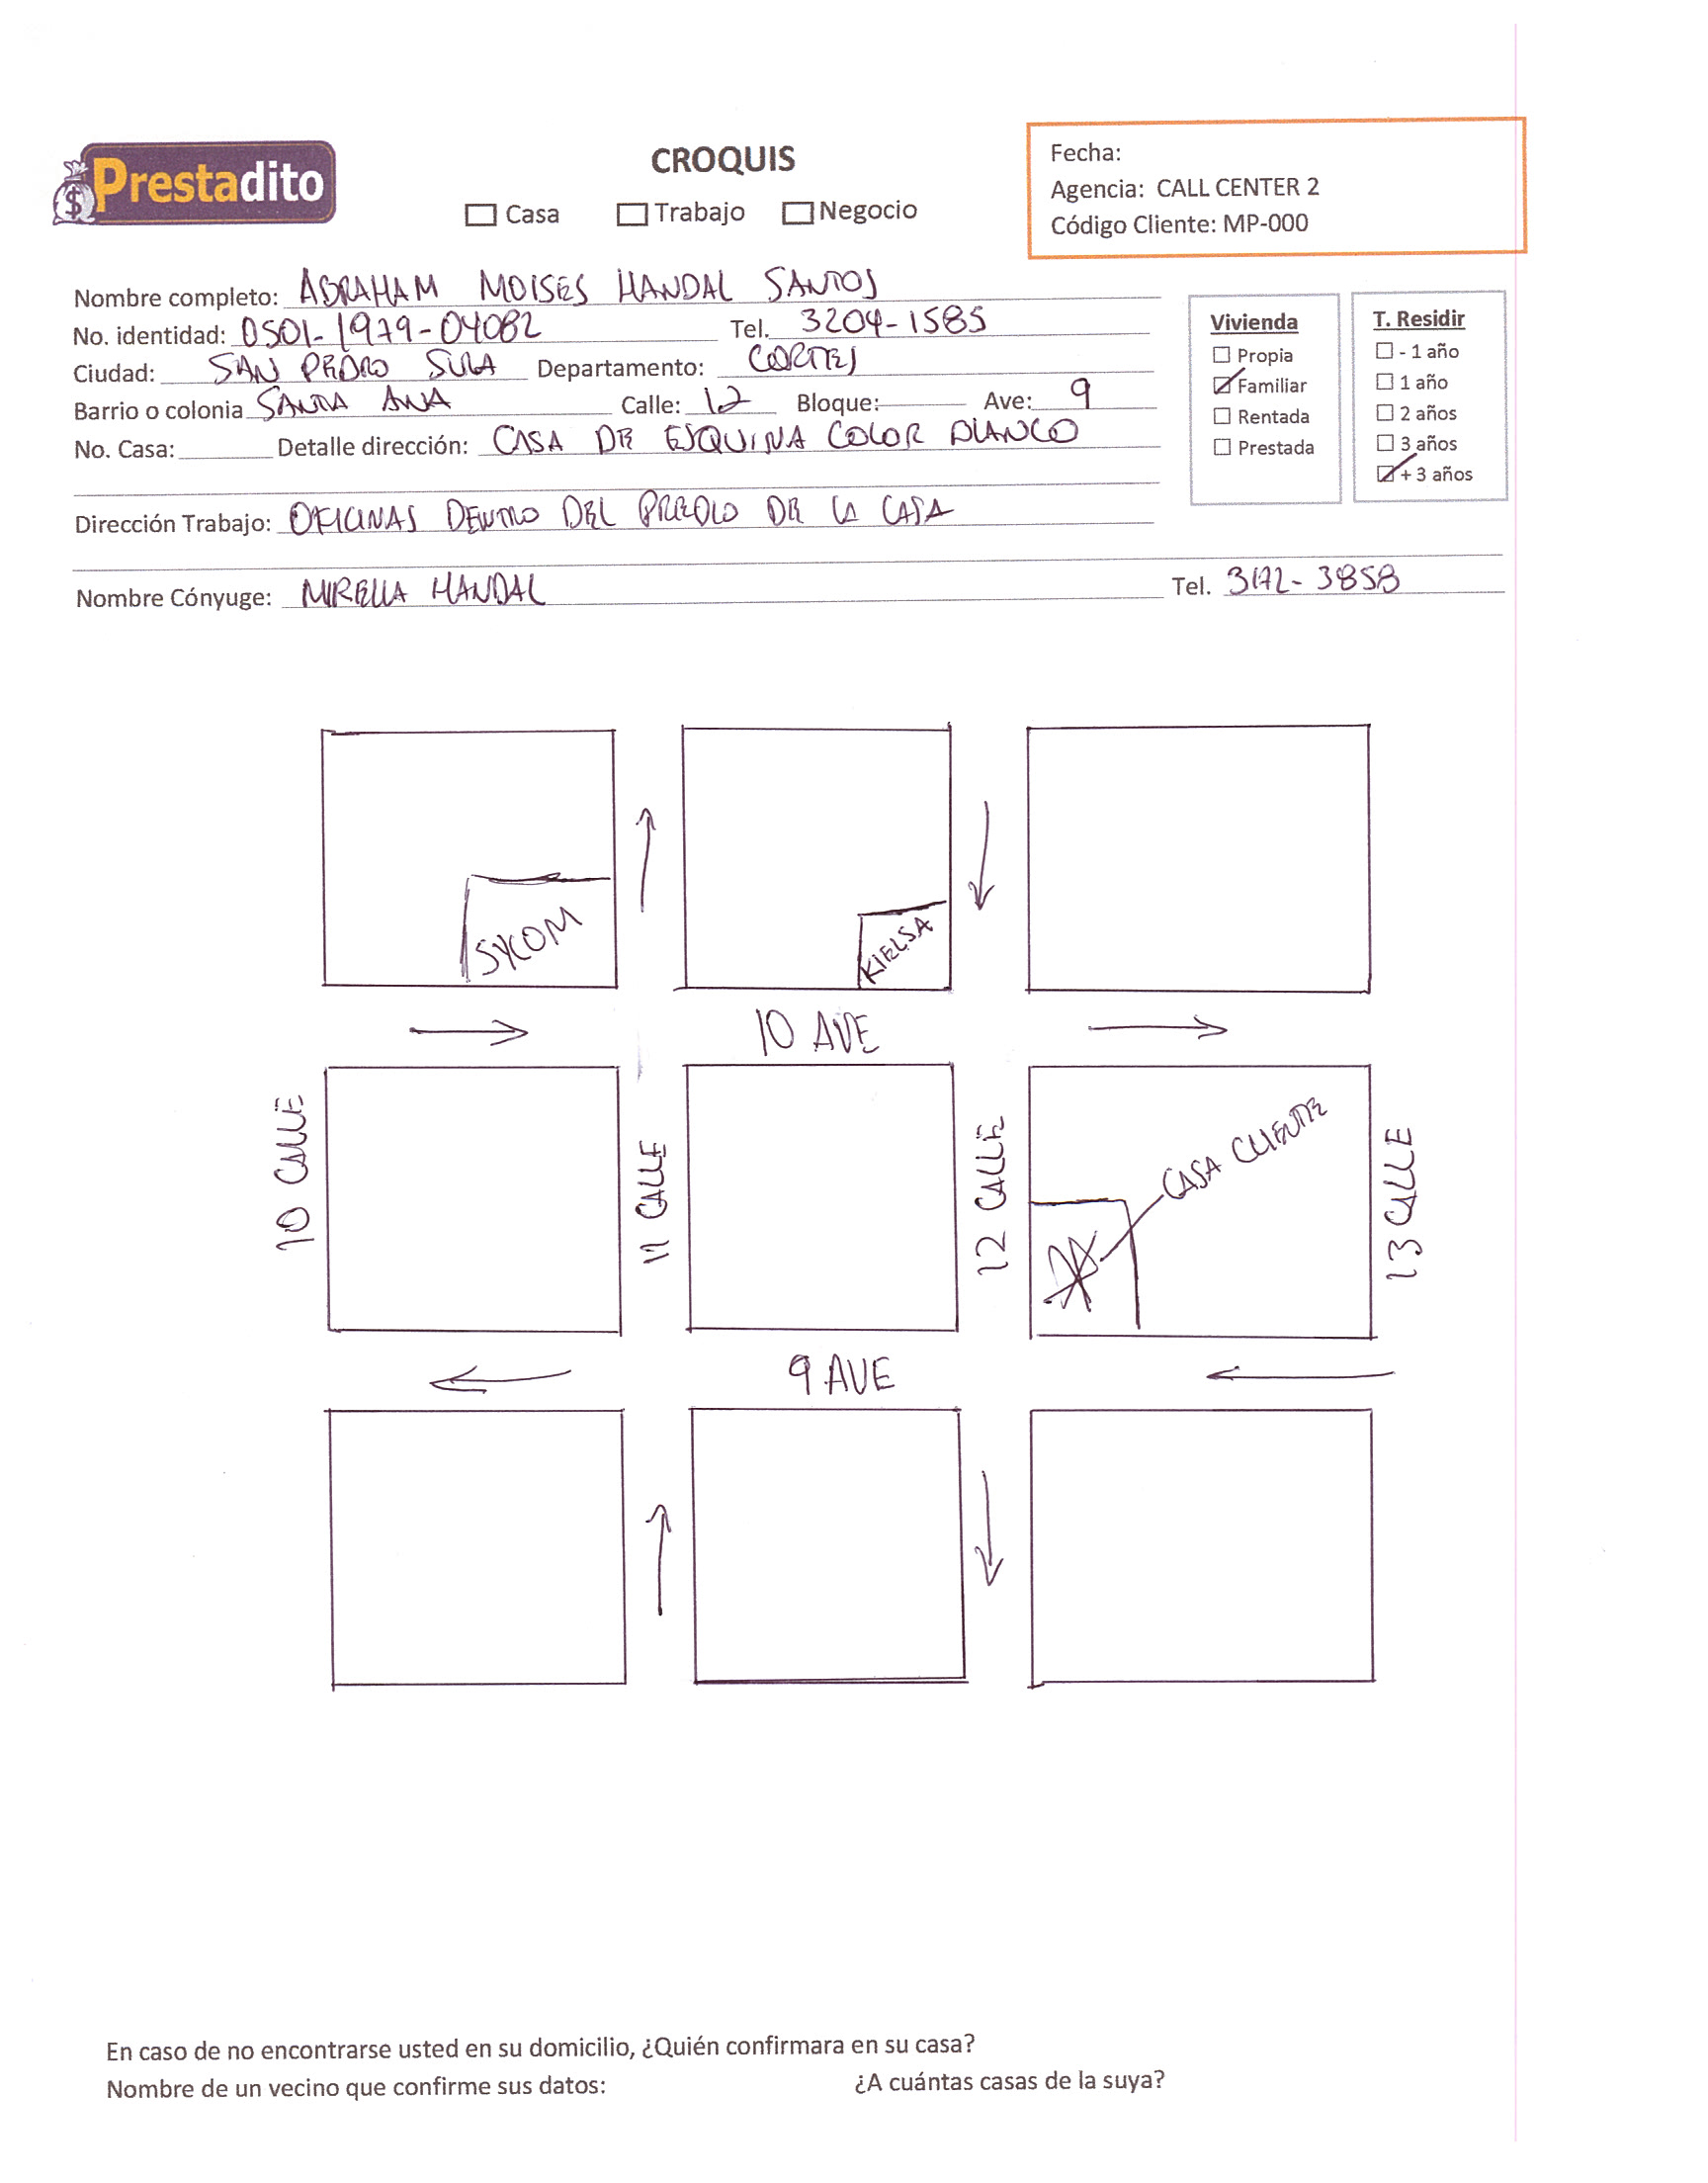 Prestadito
CROQUIS
Casa Trabajo Negocio
Fecha:
Agencia: CALL CENTER 2
Código Cliente: MP-000
Nombre completo: ABRAHAM MOISES HANDAL SANTOS
No. identidad: 0501-1979-04082 Tel. 3204-1585
Ciudad: SAN PEDRO SULA Departamento: CORTES
Barrio o colonia SANTA ANA Calle: 12 Bloque: Ave: 9
No. Casa: Detalle dirección: CASA DE ESQUINA COLOR BLANCO
Dirección Trabajo: OFICINAS DENTRO DEL PREDIO DE LA CASA
Nombre Cónyuge: MIRELLA HANDAL Tel. 3172-3858
Vivienda
Propia
Familiar
Rentada
Prestada
T. Residir
- 1 año
1 año
2 años
3 años
+ 3 años
SYCOM
KIELSA
10 AVE
10 CALLE
11 CALLE
12 CALLE
CASA CLIENTE
13 CALLE
9 AVE
En caso de no encontrarse usted en su domicilio, ¿Quién confirmara en su casa?
Nombre de un vecino que confirme sus datos: ¿A cuántas casas de la suya?